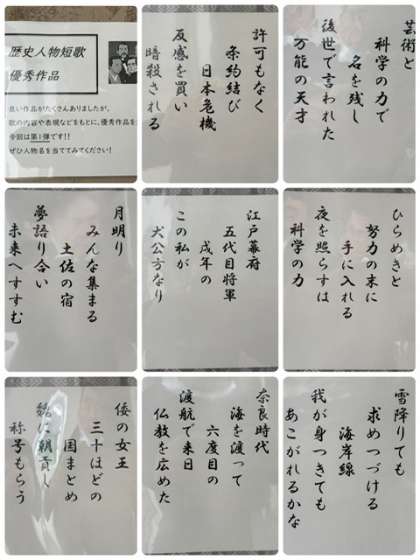 歴史人物短歌
優秀作品
良い作品がたくさんありましたが、
歌の内容や表現などをもとに、優秀作品を
今回は第1弾です!!
ぜひ人物名を当ててみてください!
許可もなく
条約結び
日本危機
反感を買い
暗殺される
芸術と
科学の力で
名を残し
後世で言われた
万能の天才
月明り
みんな集まる
土佐の宿
夢語り合い
未来へすすむ
江戸幕府
五代目将軍
戌年の
この私が
犬公方なり
ひらめきと
努力の末に
手に入れる
夜を照らすは
科学の力
倭の女王
三十ほどの
国まとめ
魏に朝貢し
称号もらう
奈良時代
海を渡って
六度目の
渡航で来日
仏教を広めた
雪降りても
求めつづける
海岸線
我が身つきても
あこがれるかな